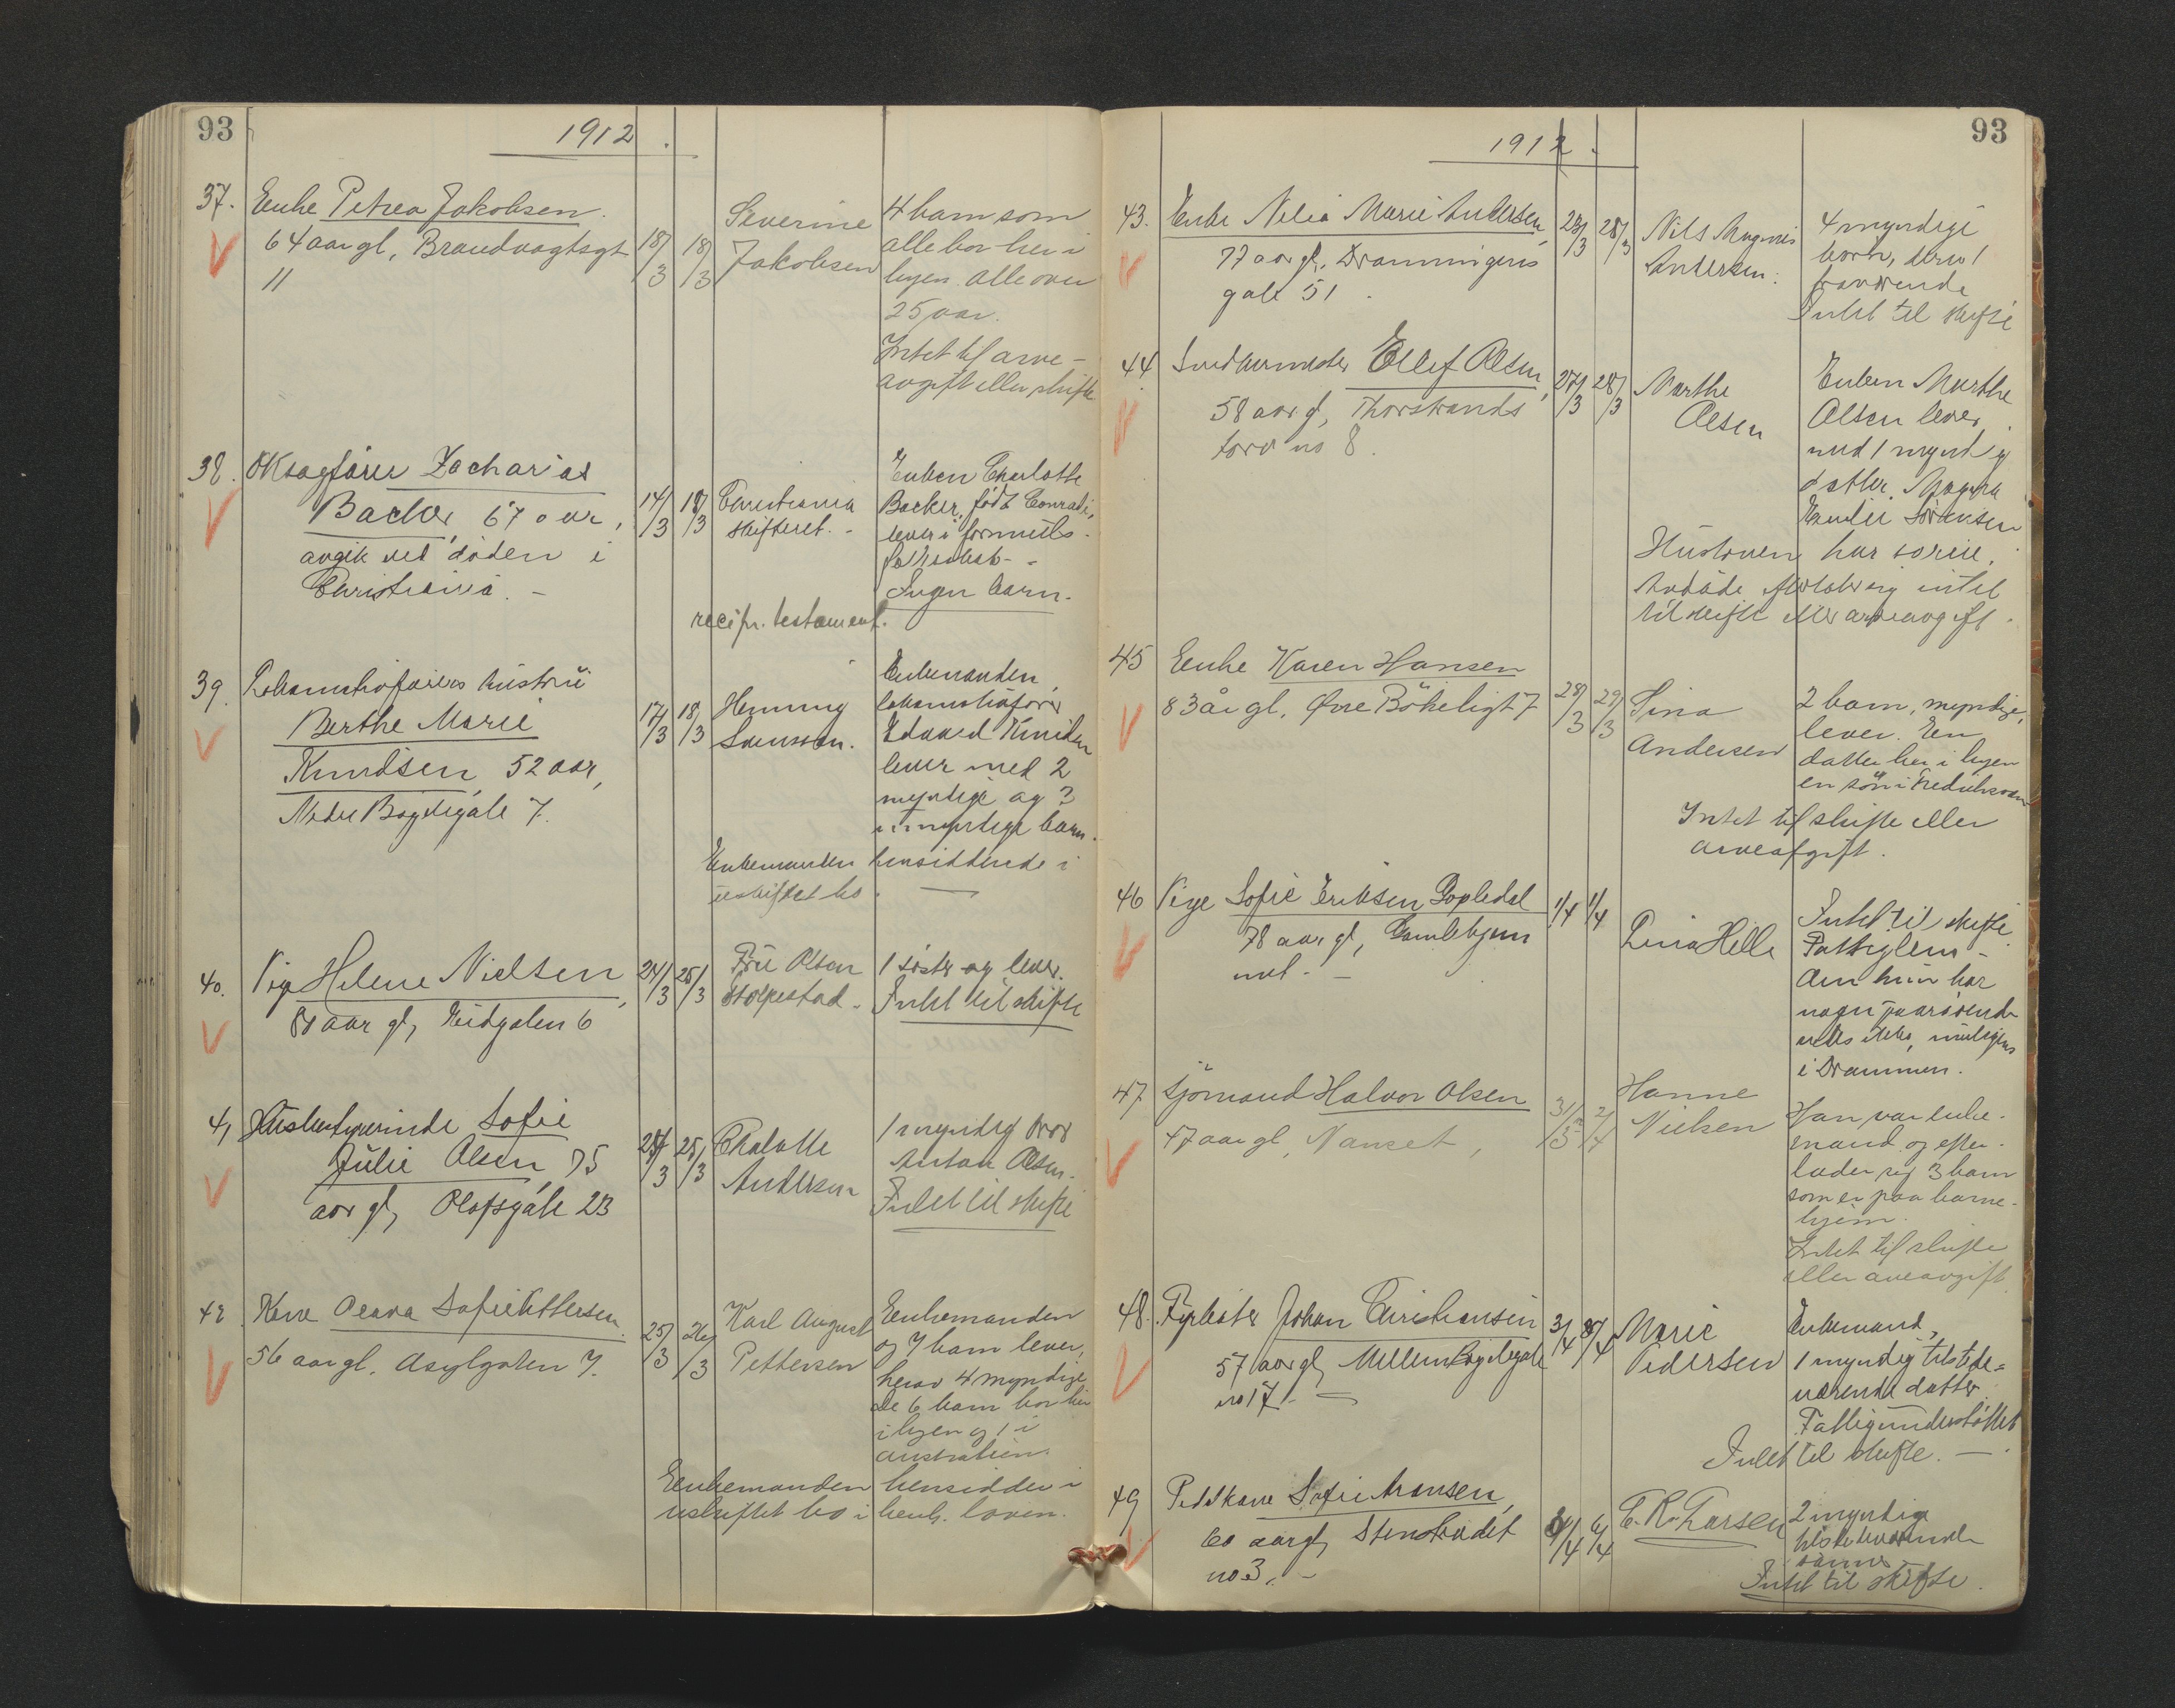 93
1912.
37. Enke Petrea Jakobsen.
64 aar gl, Brandvagtsgt
11
18/3 18/3
Severine
Jakobsen
4 barn som
alle bor her i
byen. Alle over
25 aar.
Intet til arve-
avgift eller skifte
38. OKsagfører Zacharias
Backer, 67 aar,
avgik ved døden i
Christiania. -
14/3 18/3
Christiania
skifteret. -
Enken Charlotte
Backer, født Conradi,
lever i formues-
fællesskab. -
Ingen barn.
recipr. testament.
39. Lokomotivførers hustru
Berthe Marie
Knudsen, 52 aar,
Nedre Bøgeligate 7.
17/3 18/3
Henning
Svensson.
Enkemanden,
lokomotivfører
Edvard Knudsen
lever med 2
myndige og 3
umyndige barn.
Enkemanden hensiddende i
uskiftet bo. -
40. Pige Helene Nielsen,
80 aar gl, Eidgaten 6
24/3 25/3
Fru Olsen
Stolpestad.
1 søster og lever.
Intet til skifte
41 Husbestyrerinde Sofie
Julie Olsen, 75
aar gl, Olafsgate 23
24/3 25/3
Chalotte
Andersen
1 myndig bror
Anton Olsen.
Intet til skifte
42. Kone Olava Sofie Pettersen.
56 aar gl. Asylgaten 7.
25/3 26/3
Karl August
Pettersen
Enkemanden
og 7 barn lever,
herav 4 myndige
de 6 barn bor her
i byen og 1 i
Australien.
Enkemanden hensidder i
uskiftet bo i henh. loven.
93
1912.
43. Enke Nelia Marie Andersen,
77 aar gl. Dronningens
gate 51.
23/3 28/3
Nils Magnus
Andersen.
4 myndige
børn, derav 1
fraværende
Intet til skifte
44. Ellef Olsen,
58 aar gl, Thorstrands
torv no 8.
27/3 28/3
Marthe
Olsen
Enken Marthe
Olsen lever
med 1 myndig
datter,
Emilie Sørensen
Hustruen har
Avdøde efterlot sig intet
til skifte eller arveavgift.
45 Enke Karen Hansen
83 år gl. Øvre Bökeligt 7
28/3 29/3
Sina
Andersen
2 barn, myndige,
lever. En
datter her i byen
en søn i Fredriksværn
Intet til skifte eller
arveafgift.
46 Pige Sofie Eriksen Gopledal
78 aar gl, Gamlehjem
met. -
1/4 1/4
Lina Helle
Intet til skifte.
Fattiglem -
Om hun har
nogen paarørende
vites ikke, muligens
i Drammen.
47 Sjömand Halvor Olsen
47 aar gl, Nanset,
31/3 2/4
Hanne
Nielsen
Han var enke-
mand og efter-
lader sig 3 barn
som er paa barne-
hjem.
Intet til skifte
eller arveavgift
48. Fyrbøter Johan Christiansen
57 aar gl, Mellem Bøgeligate
no 17. -
3/4 3/4
Marie
Pedersen
Enkemand,
1 myndig tilstede-
værende datter.
Fattigunderstøttet
Intet til skifte. -
49 Pedelkone Sofie Aronsen,
60 aar gl, Stenstrædet
no 3. -
4/4 6/4
C. R. Larsen
2 myndige
tilstedeværende
sønner
Intet til skifte.